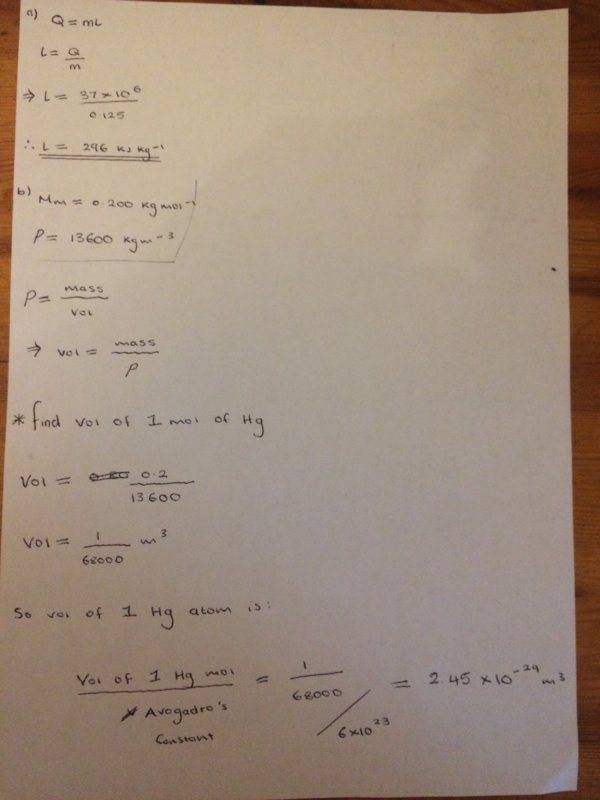 a) Q = mL
L = Q
m
⇒ L = 37 × 10⁶
0.125
∴ L = 296 kJ kg⁻¹
b) Mm = 0.200 kg mol⁻¹
ρ = 13600 kg m⁻³
ρ = mass
vol
⇒ vol = mass
ρ
* find vol of 1 mol of Hg
Vol = 0.2
13600
Vol = 1 m³
68000
So vol of 1 Hg atom is:
Vol of 1 Hg mol = 1 = 2.45 × 10⁻²⁹ m³
Avogadro's 68000
Constant 6×10²³